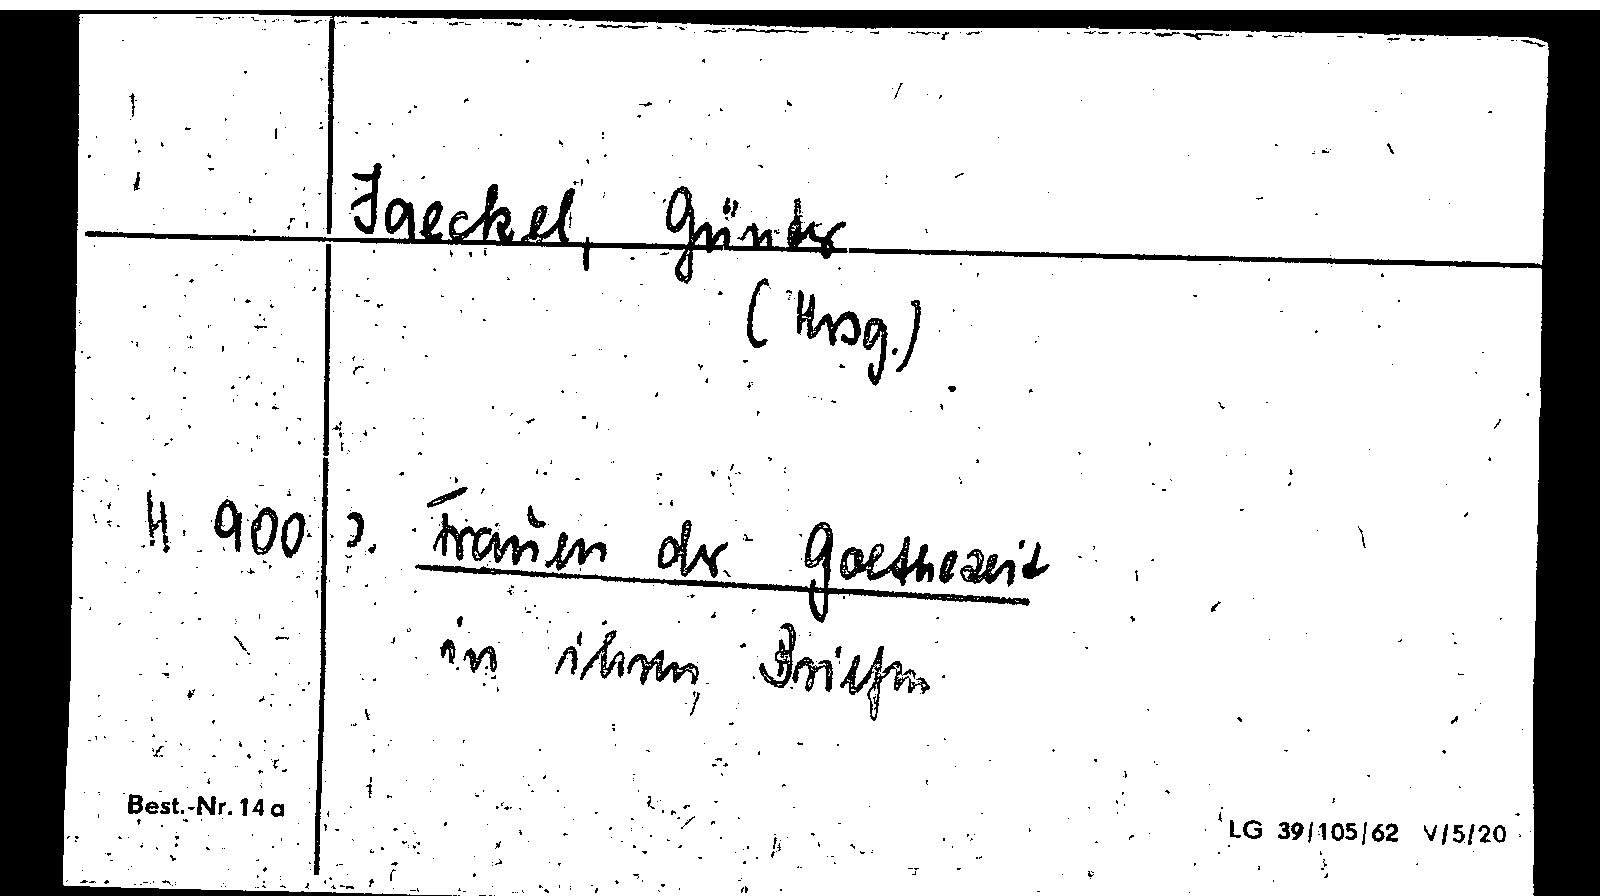 Jaeckel, Günter
(Hrsg.)
H 900 ). Frauen der Goethezeit
in ihren Briefen
Best.-Nr. 14 a
LG 39/105/62 V/5/20